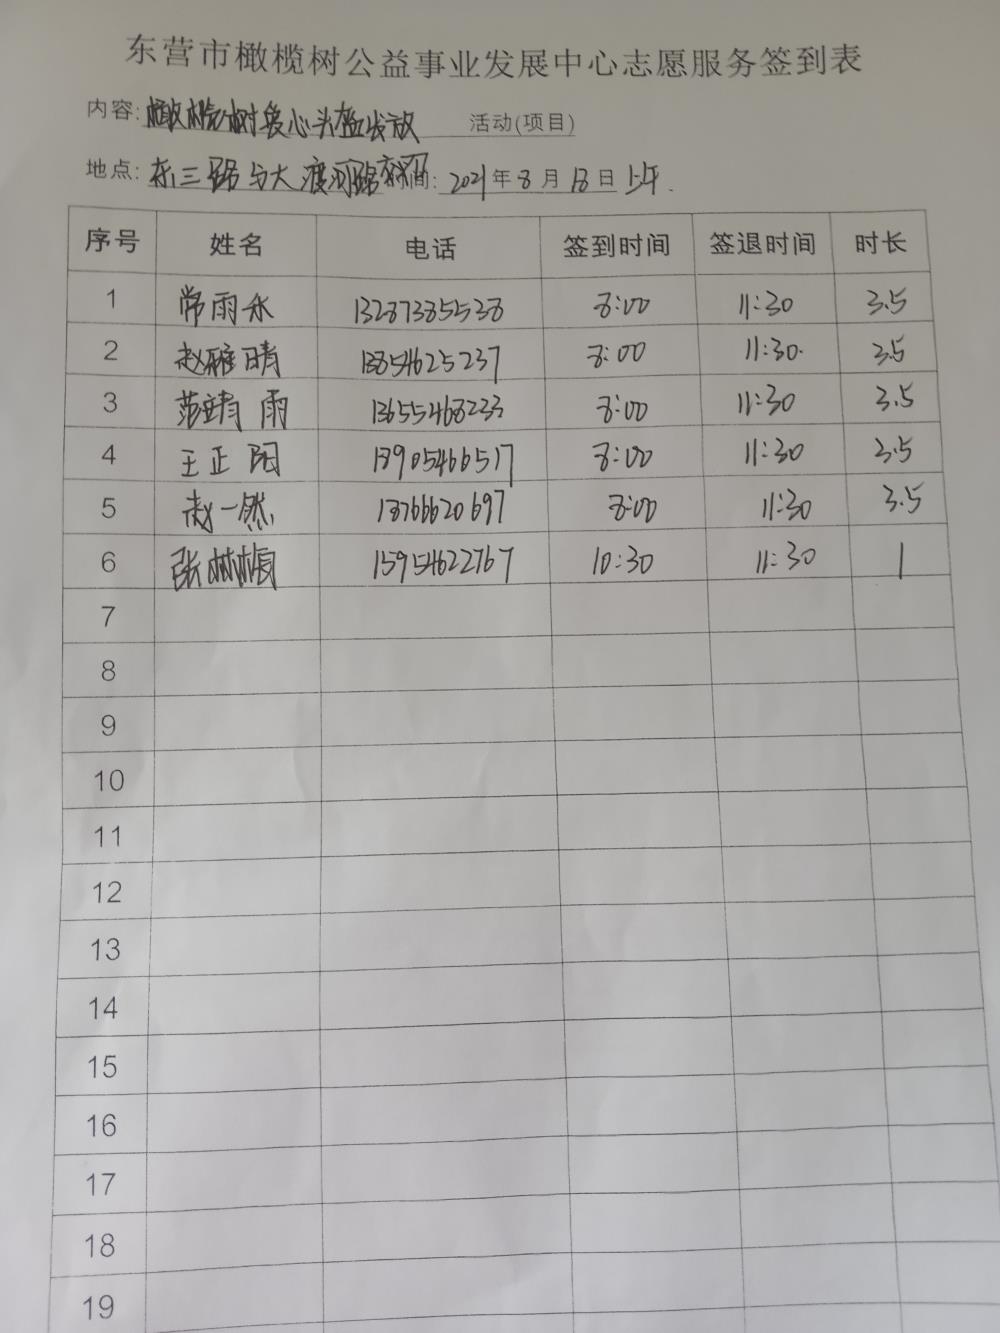 东营市橄榄树公益事业发展中心志愿服务签到表
内容: 橄榄树爱心头盔发放 活动(项目)
地点: 东三路与大渡河路交叉口 时间: 2021年8月18日 上午.
序号 姓名 电话 签到时间 签退时间 时长
1 常雨禾 13287385538 8:00 11:30 3.5
2 赵雅晴 13854625237 8:00 11:30. 3.5
3 范靖雨 13655468233 8:00 11:30 3.5
4 王正阳 13905466517 8:00 11:30 3.5
5 赵一然 13766620697 8:00 11:30 3.5
6 张林梅 15954622767 10:30 11:30 1
7
8
9
10
11
12
13
14
15
16
17
18
19